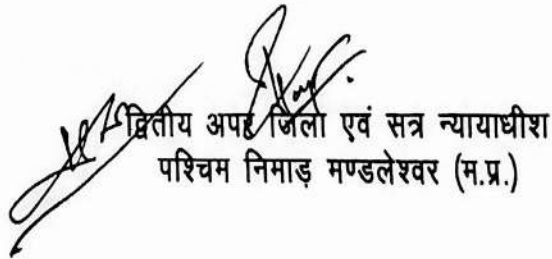 द्वितीय अपर जिला एवं सत्र न्यायाधीश
पश्चिम निमाड़ मण्डलेश्वर (म.प्र.)